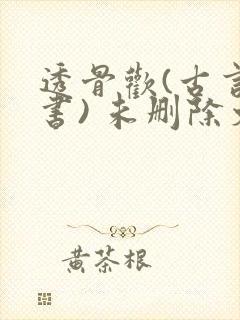 透骨歡(古言
書)未删除
黄茶根